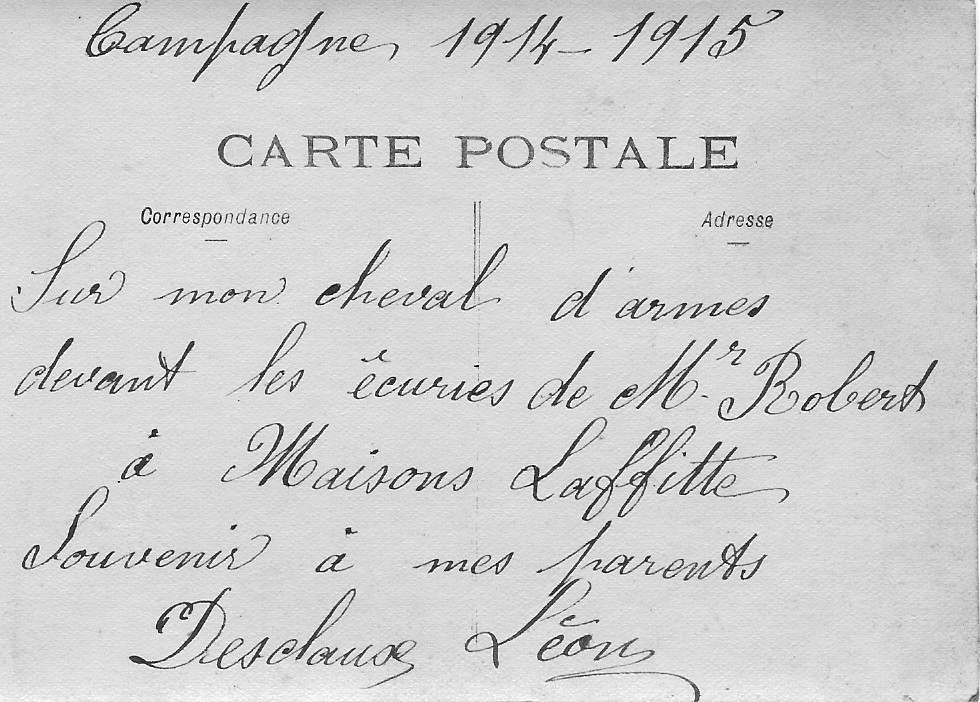 Campagne 1914-1915
CARTE POSTALE
Correspondance
Adresse
Sur mon cheval d'armes
devant les écuries de Mr Robert
à Maisons Laffitte
Souvenir à mes parents
Desclaux Léon